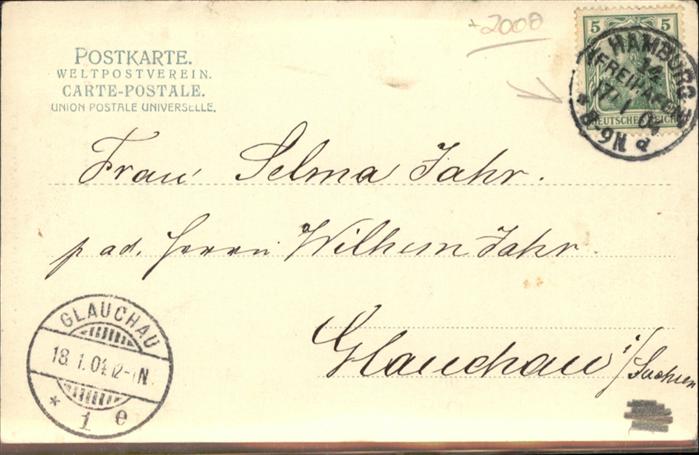 2008
5 5
DEUTSCHES REICH
HAMBURG
14
(FREIHAFEN)
17.1.04
8-9N.
d
POSTKARTE.
WELTPOSTVEREIN.
CARTE-POSTALE.
UNION POSTALE UNIVERSELLE.
Frau Selma Jahr.
p. ad. Herrn Wilhelm Jahr.
Glauchau i/Sachsen
GLAUCHAU
18.1.04 12-1N.
* 1 e